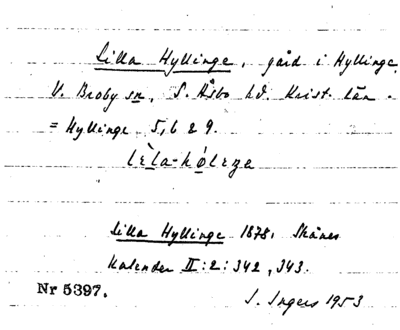 Lilla Hyllinge, gård i Hyllinge,
V. Broby sn, S. Åsbo hd. Krist. län.
= Hyllinge 5, 6 & 9.
Lilla Hyllinge 1878. Skånes
Kalender II:2:342, 343.
Nr 5397.
J. Ingers 1953